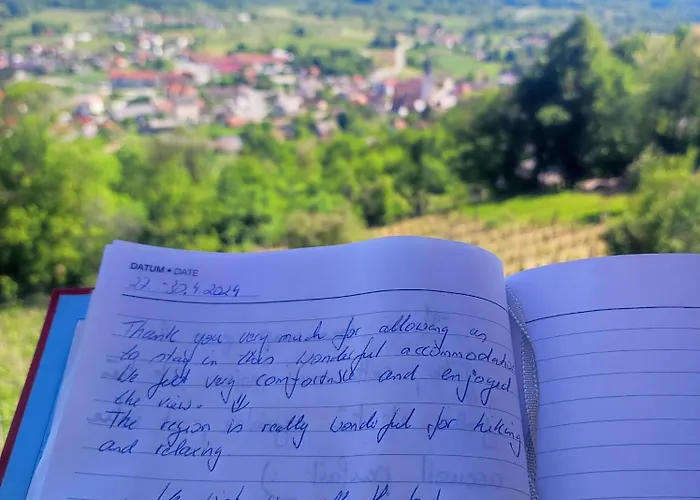 DATUM • DATE
27. - 30.4.2024
Thank you very much for allowing us
to stay in this wonderful accommodation
We felt very comfortable and enjoyed
the view.
The region is really wonderful for hiking
and relaxing.